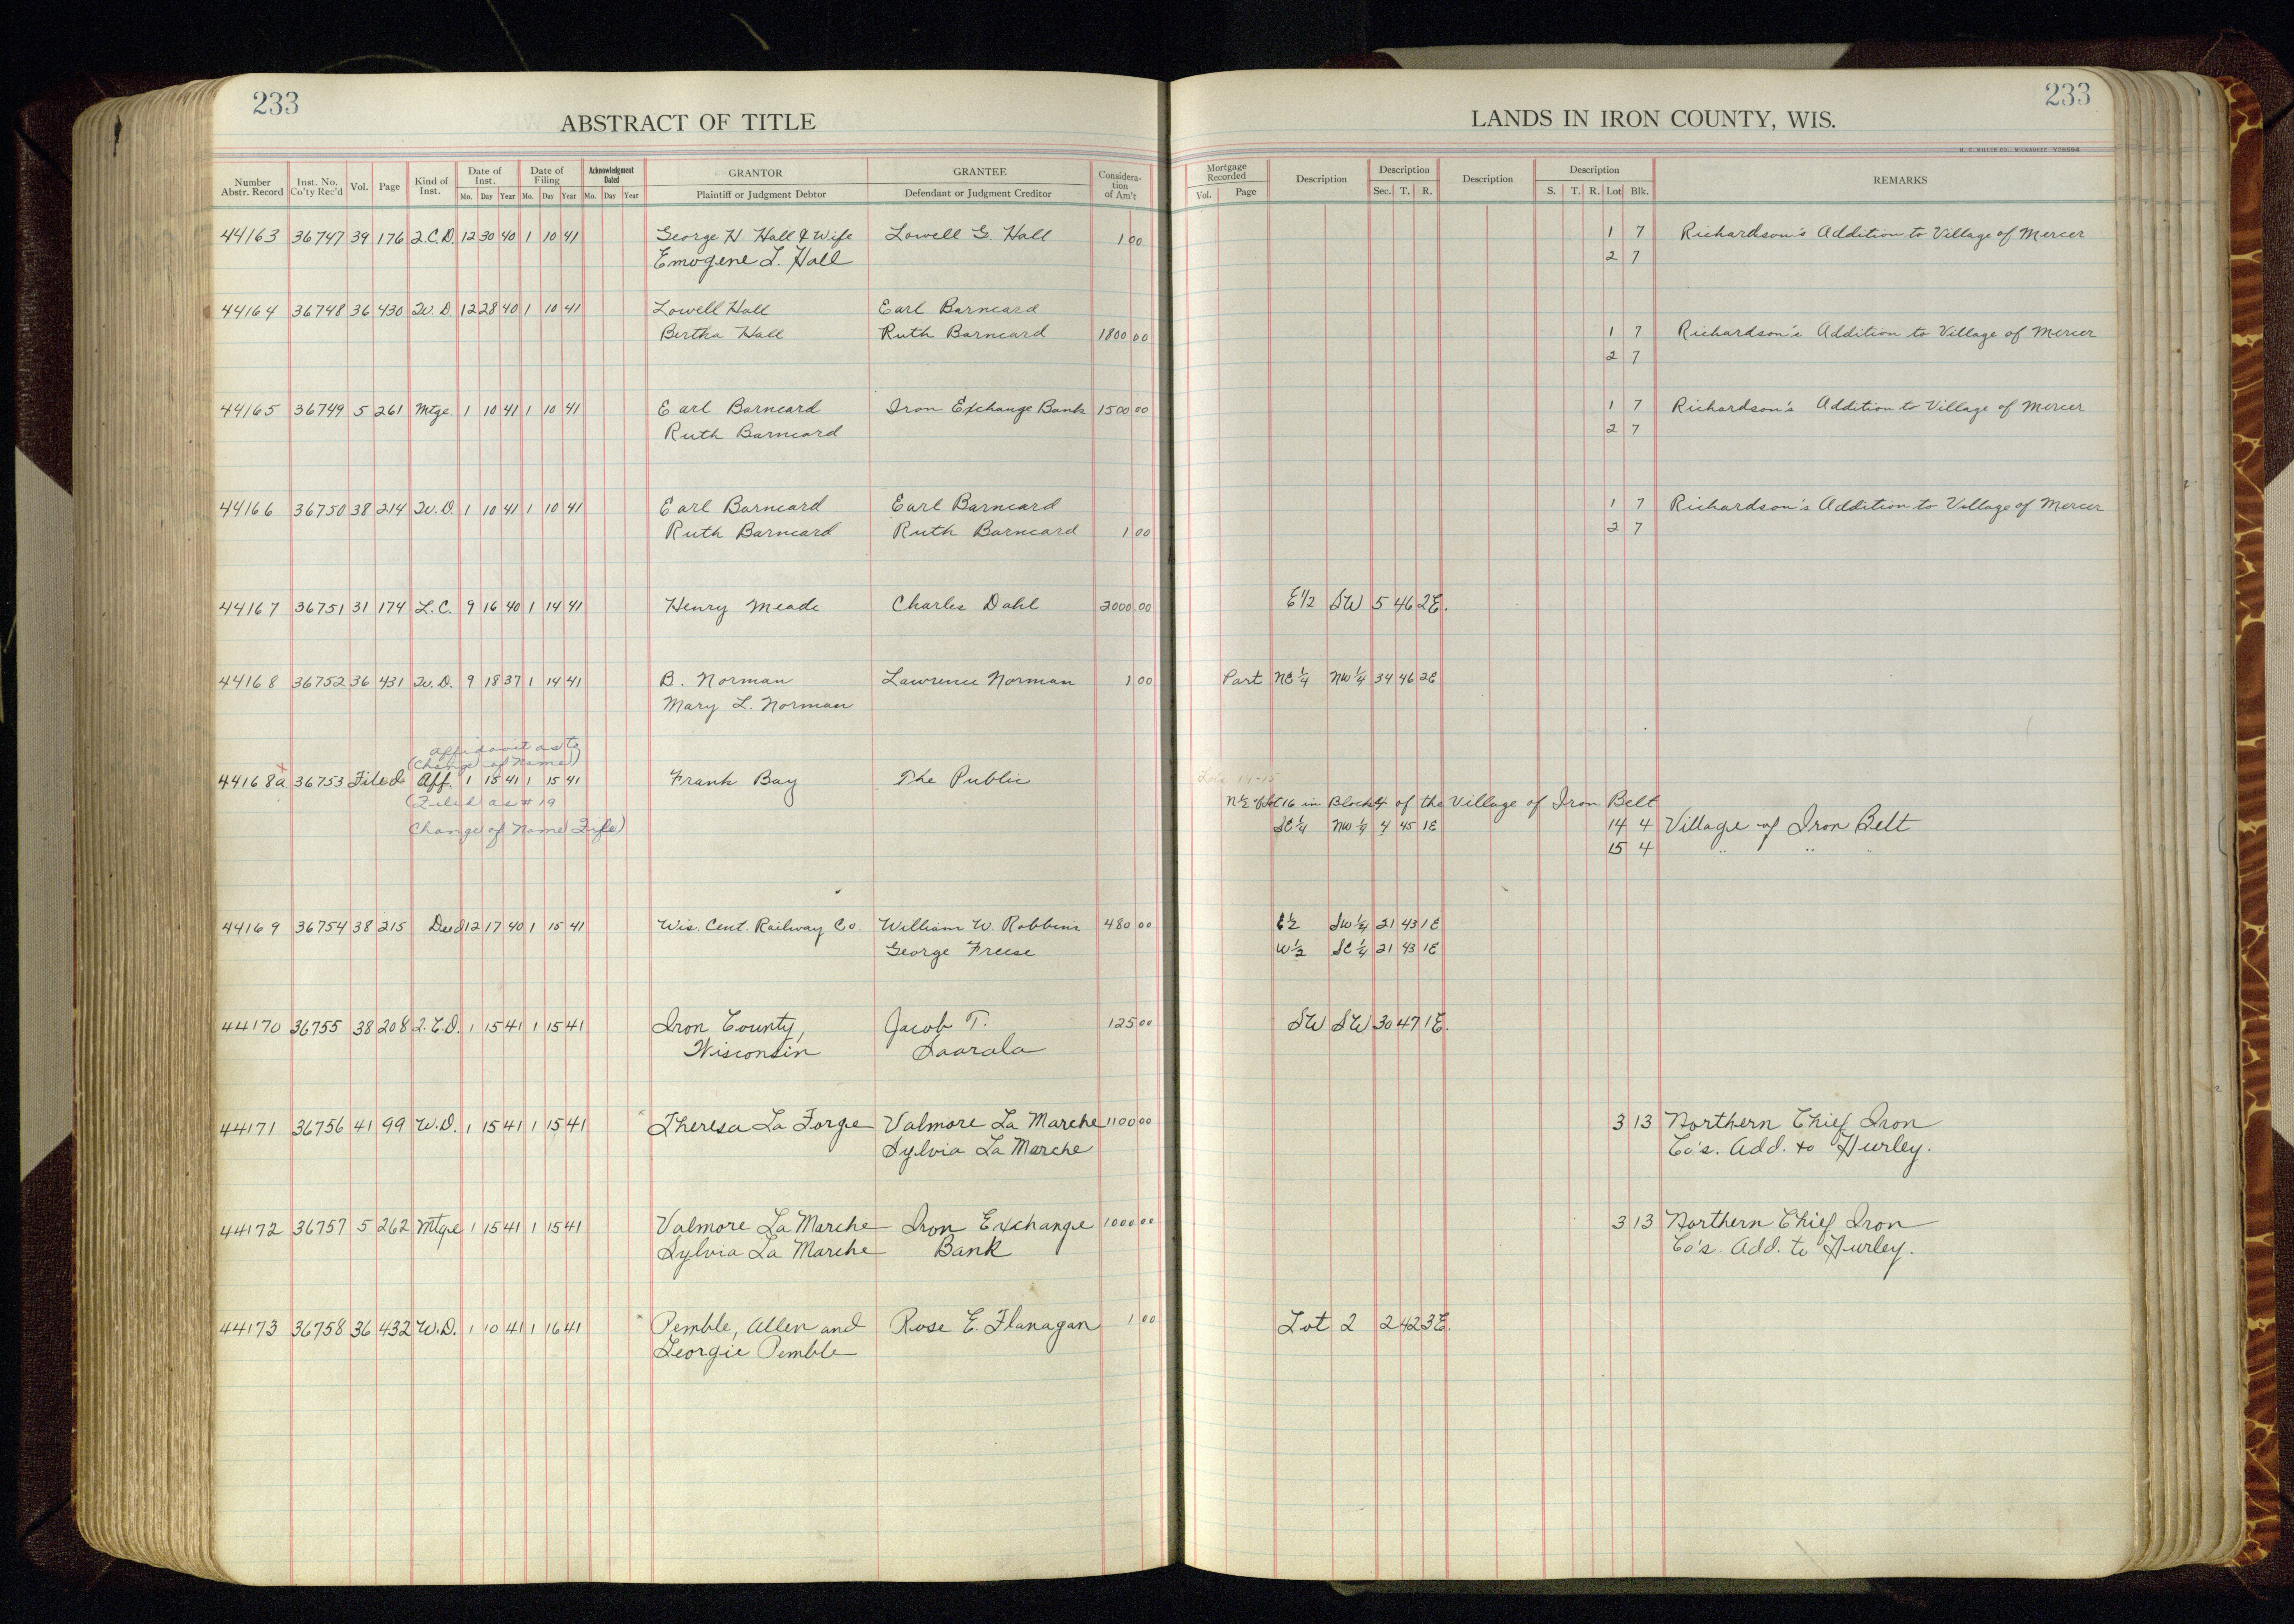 233
ABSTRACT OF TITLE
LANDS IN IRON COUNTY, WIS.
233
H. C. MILLER CO., MILWAUKEE
Number Abstr. Record | Inst. No. Co'ty Rec'd | Vol. | Page | Kind of Inst. | Date of Inst. Mo. Day Year | Date of Filing Mo. Day Year | Acknowledgment Dated Mo. Day Year | GRANTOR Plaintiff or Judgment Debtor | GRANTEE Defendant or Judgment Creditor | Consideration of Am't | Mortgage Recorded Vol. Page | Description | Description Sec. T. R. | Description | Description S. T. R. Lot Blk. | REMARKS
44163 36747 39 176 Q.C.D. 12 30 40 1 10 41 George H. Hall & Wife Lowell G. Hall 1 00 1 7 Richardson's Addition to Village of Mercer
Emogene L. Hall 2 7
44164 36748 36 430 W.D. 12 28 40 1 10 41 Lowell Hall Earl Barneard
Bertha Hall Ruth Barneard 1800 00 1 7 Richardson's Addition to Village of Mercer
2 7
44165 36749 5 261 Mtge. 1 10 41 1 10 41 Earl Barneard Iron Exchange Bank 1500 00 1 7 Richardson's Addition to Village of Mercer
Ruth Barneard 2 7
44166 36750 38 214 W.D. 1 10 41 1 10 41 Earl Barneard Earl Barneard 1 7 Richardson's Addition to Village of Mercer
Ruth Barneard Ruth Barneard 1 00 2 7
44167 36751 31 174 L.C. 9 16 40 1 14 41 Henry Meade Charles Dahl 2000 00 E1/2 SW 5 46 2E.
44168 36752 36 431 W.D. 9 18 37 1 14 41 B. Norman Lawrence Norman 1 00 Part NE 1/4 NW 1/4 34 46 2E
Mary L. Norman
affidavit as to
(Change of Name)
44168a x 36753 Filed Aff. 1 15 41 1 15 41 Frank Bay The Public Lots 14-15
(Filed as #19 N 1/2 of Lot 16 in Block 4 of the Village of Iron Belt
Change of Name File) SE 1/4 NW 1/4 4 45 1E 14 4 Village of Iron Belt
15 4 " " "
44169 36754 38 215 Deed 12 17 40 1 15 41 Wis. Cent. Railway Co. William W. Robbins 480 00 E 1/2 SW 1/4 21 43 1E
George Freese W 1/2 SE 1/4 21 43 1E
44170 36755 38 208 Q.C.D. 1 15 41 1 15 41 Iron County, Jacob T. 125 00 SW SW 30 47 1E.
Wisconsin Saarala
44171 36756 41 99 W.D. 1 15 41 1 15 41 Theresa La Forge Valmore La Marche 1100 00 3 13 Northern Chief Iron
Sylvia La Marche Co's. Add. to Hurley.
44172 36757 5 262 Mtge 1 15 41 1 15 41 Valmore La Marche Iron Exchange 1000 00 3 13 Northern Chief Iron
Sylvia La Marche Bank Co's. Add. to Hurley.
44173 36758 36 432 W.D. 1 10 41 1 16 41 Pemble, Allen and Rose E. Flanagan 1 00 Lot 2 2 42 3E.
Georgie Pemble